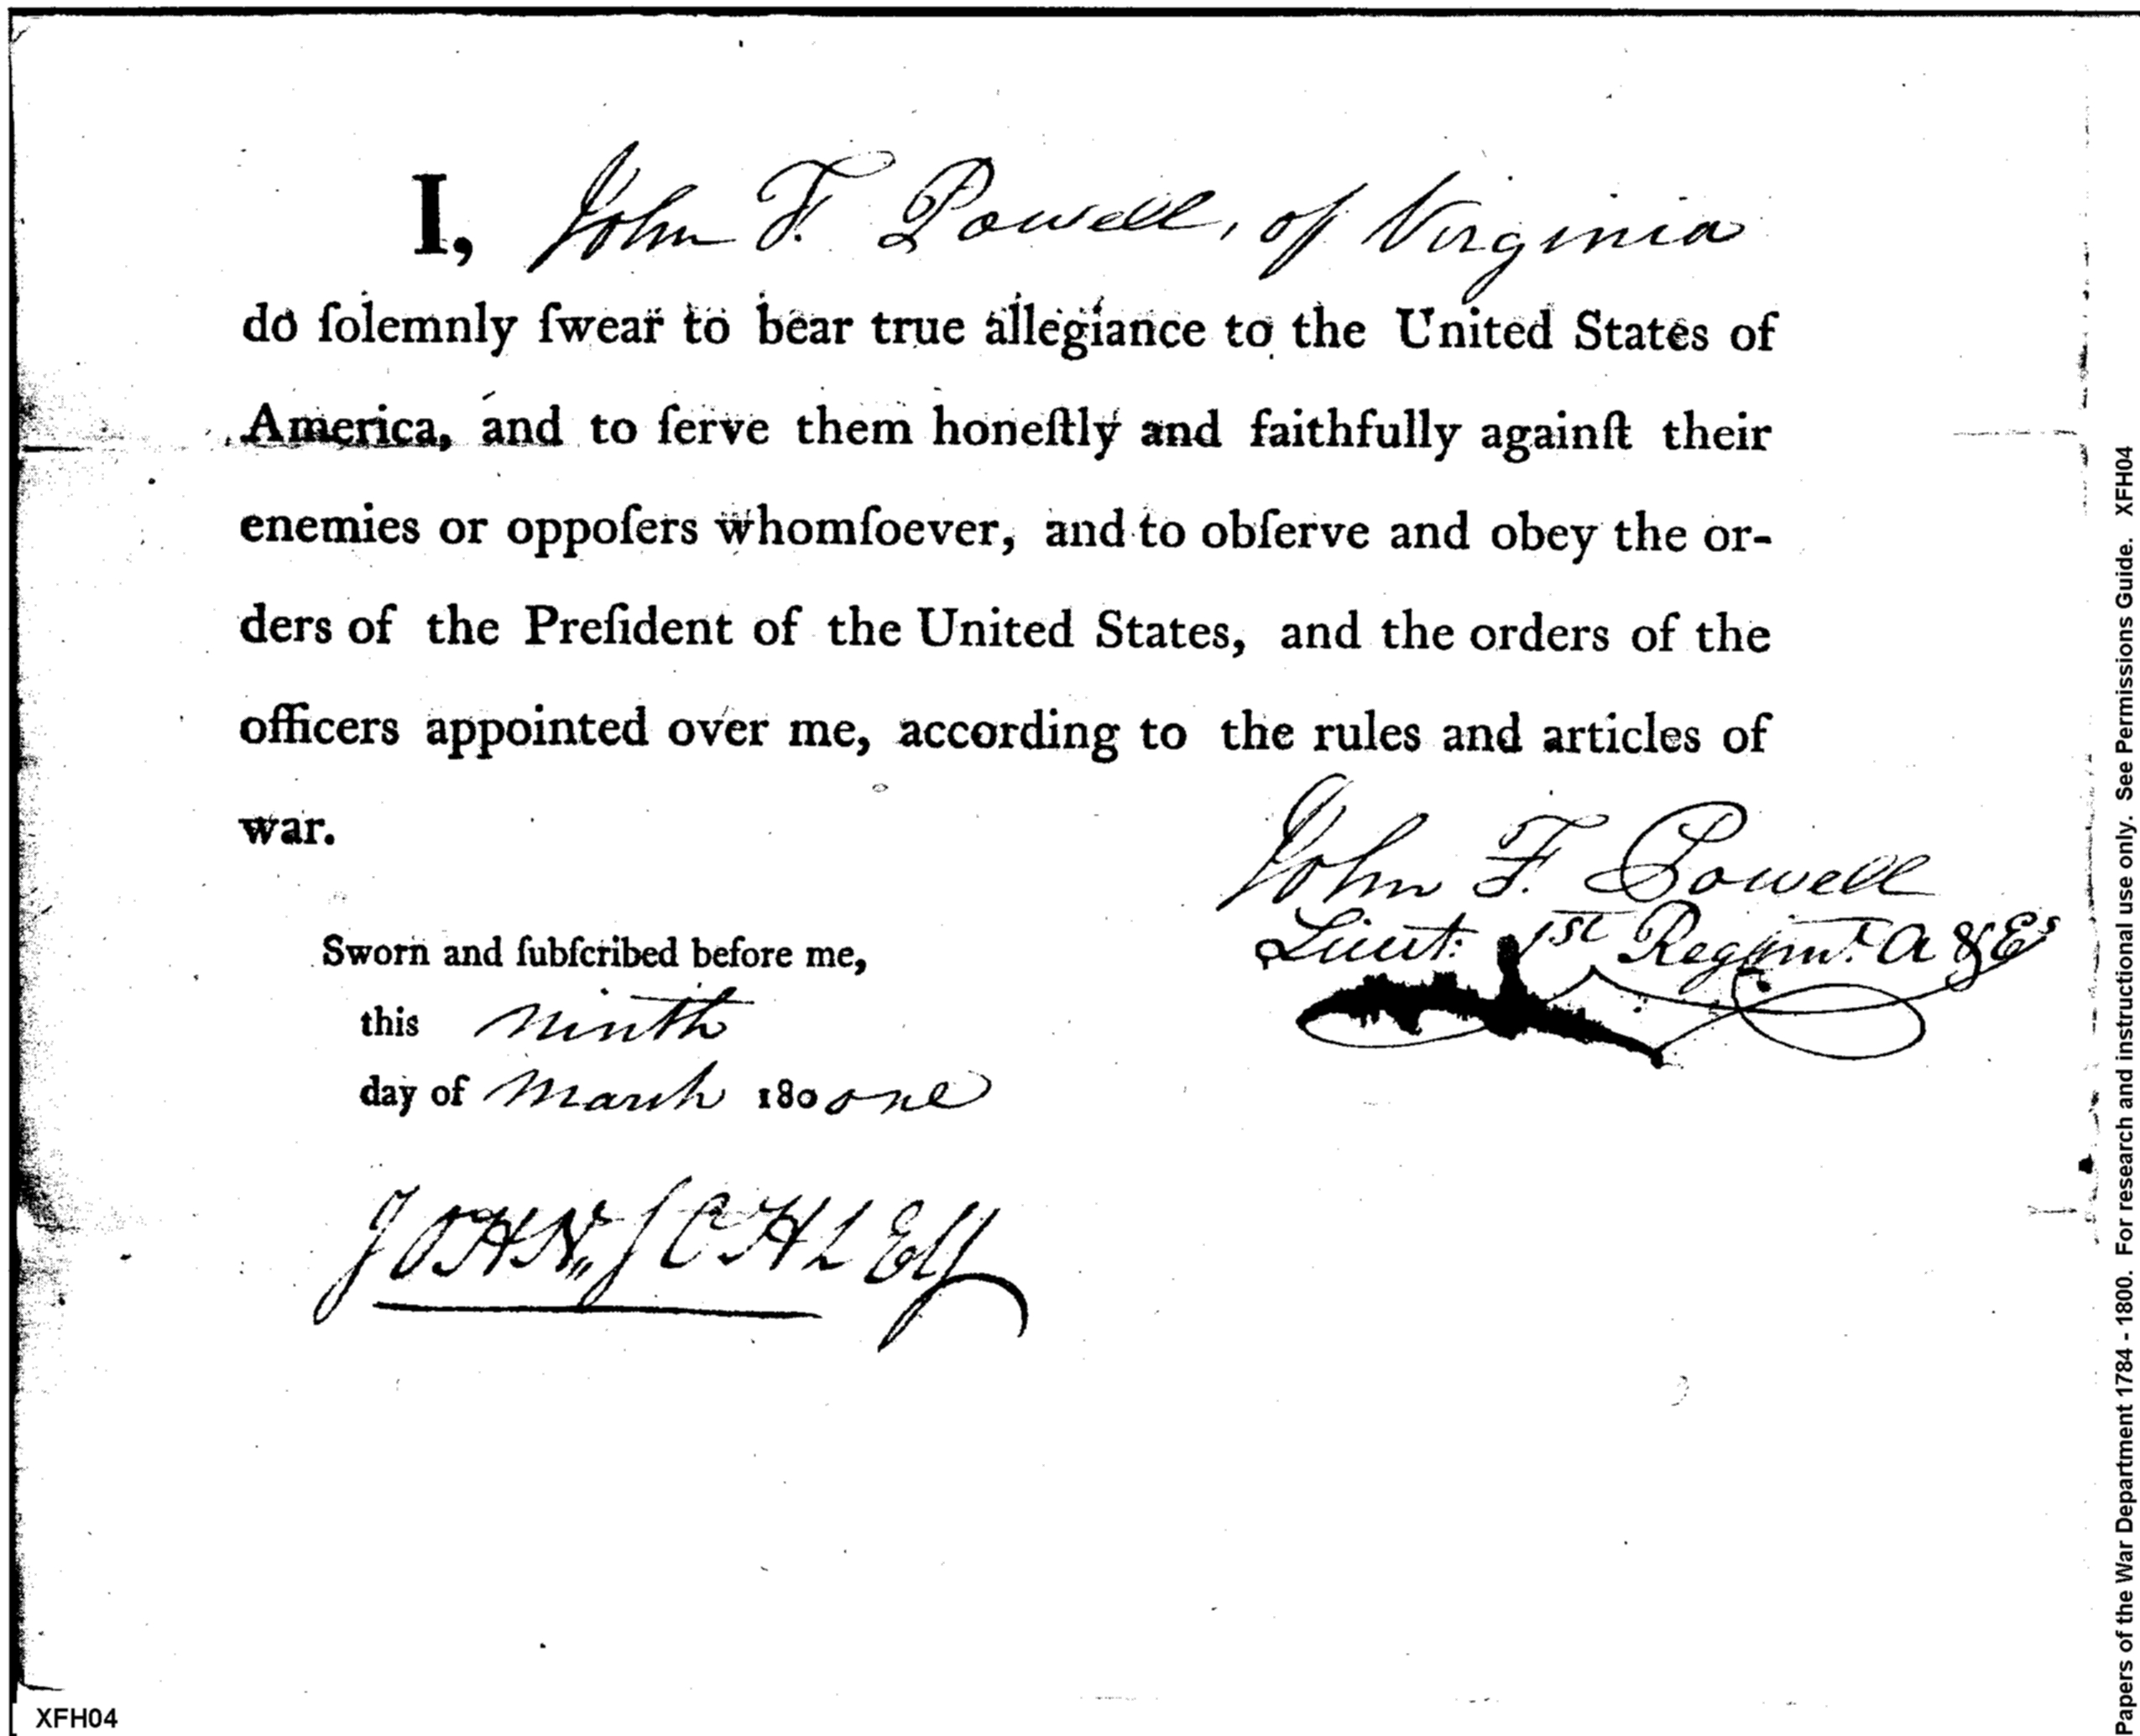 I, John F. Powell, of Virginia
do ſolemnly ſwear to bear true allegiance to the United States of
America, and to ſerve them honeſtly and faithfully againſt their
enemies or oppoſers whomſoever, and to obſerve and obey the or-
ders of the Preſident of the United States, and the orders of the
officers appointed over me, according to the rules and articles of
war.
John F. Powell
Lieut. 1st Regimt. A & Es
Sworn and ſubſcribed before me,
this ninth
day of March 180one
JOHN
XFH04
Papers of the War Department 1784 - 1800. For research and instructional use only. See Permissions Guide. XFH04